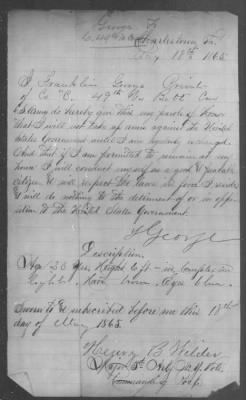 George F
C. 49th
Charlestown Va.
May 18th 1865.
I, Franklin George Private
of Co "C." 49th Va Batt Cav
do hereby give this my parole of honor
that I will not take up arms against the United
States Government until I am regularly exchanged.
And that if I am permitted to remain at my
home I will conduct myself as a good & peaceable
citizen & will respect the laws in force I reside
& will do nothing to the detriment of or in oppo-
sition to the United States Government.
F George
Description
Age 20 Yrs Height 6 ft - in Complexion
light Hair brown Eyes blue
Sworn to & subscribed before me this 18th
day of May 1865.
Henry B Wilder
Major 5th
Commanding Post.